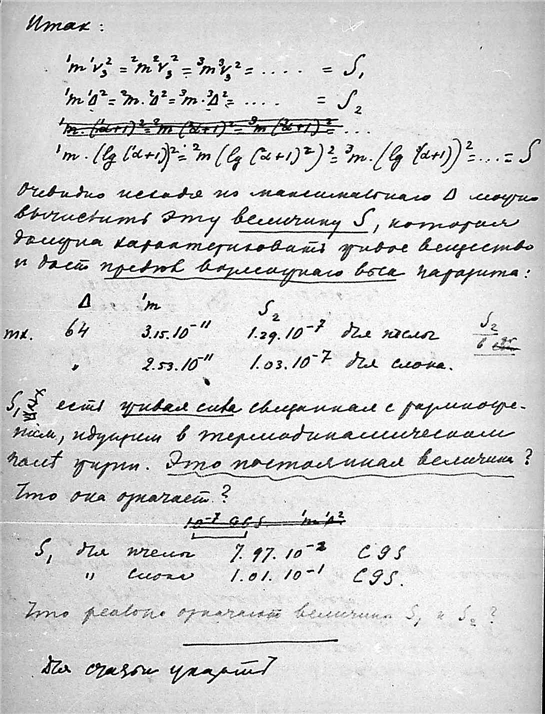 Итак:
¹m¹v₃² = ²m²v₃² = ³m³v₃² = .... = S₁
¹m¹Δ² = ²m·²Δ² = ³m·³Δ² = .... = S₂
¹m·(¹α+1)² = ²m(²α+1)² = ³m(³α+1)² = ...
¹m·(lg(¹α+1))² = ²m(lg(²α+1)²)² = ³m·(lg(³α+1))² = ... = S
Очевидно исходя из максимального Δ можно
вычислить эту величину S, которая
должна характеризовать живое вещество
и даст предел возможного веса паразита:
Δ ¹m S₂
тх. 64 3.15.10⁻¹¹ 1.29.10⁻⁷ для пчелы S₂
" 2.53.10⁻¹¹ 1.03.10⁻⁷ для слона. в
S₁ есть живая сила связанная с размноже-
нием, идущим в термодинамическом
поле жизни. Это постоянная величина?
Что она означает?
10⁻⁷ CGS ¹m¹Δ²
S₁ для пчелы 7.97.10⁻² CGS
" слона 1.01.10⁻¹ CGS.
Что реально означают величины S₁ и S₂?
Для связи указать